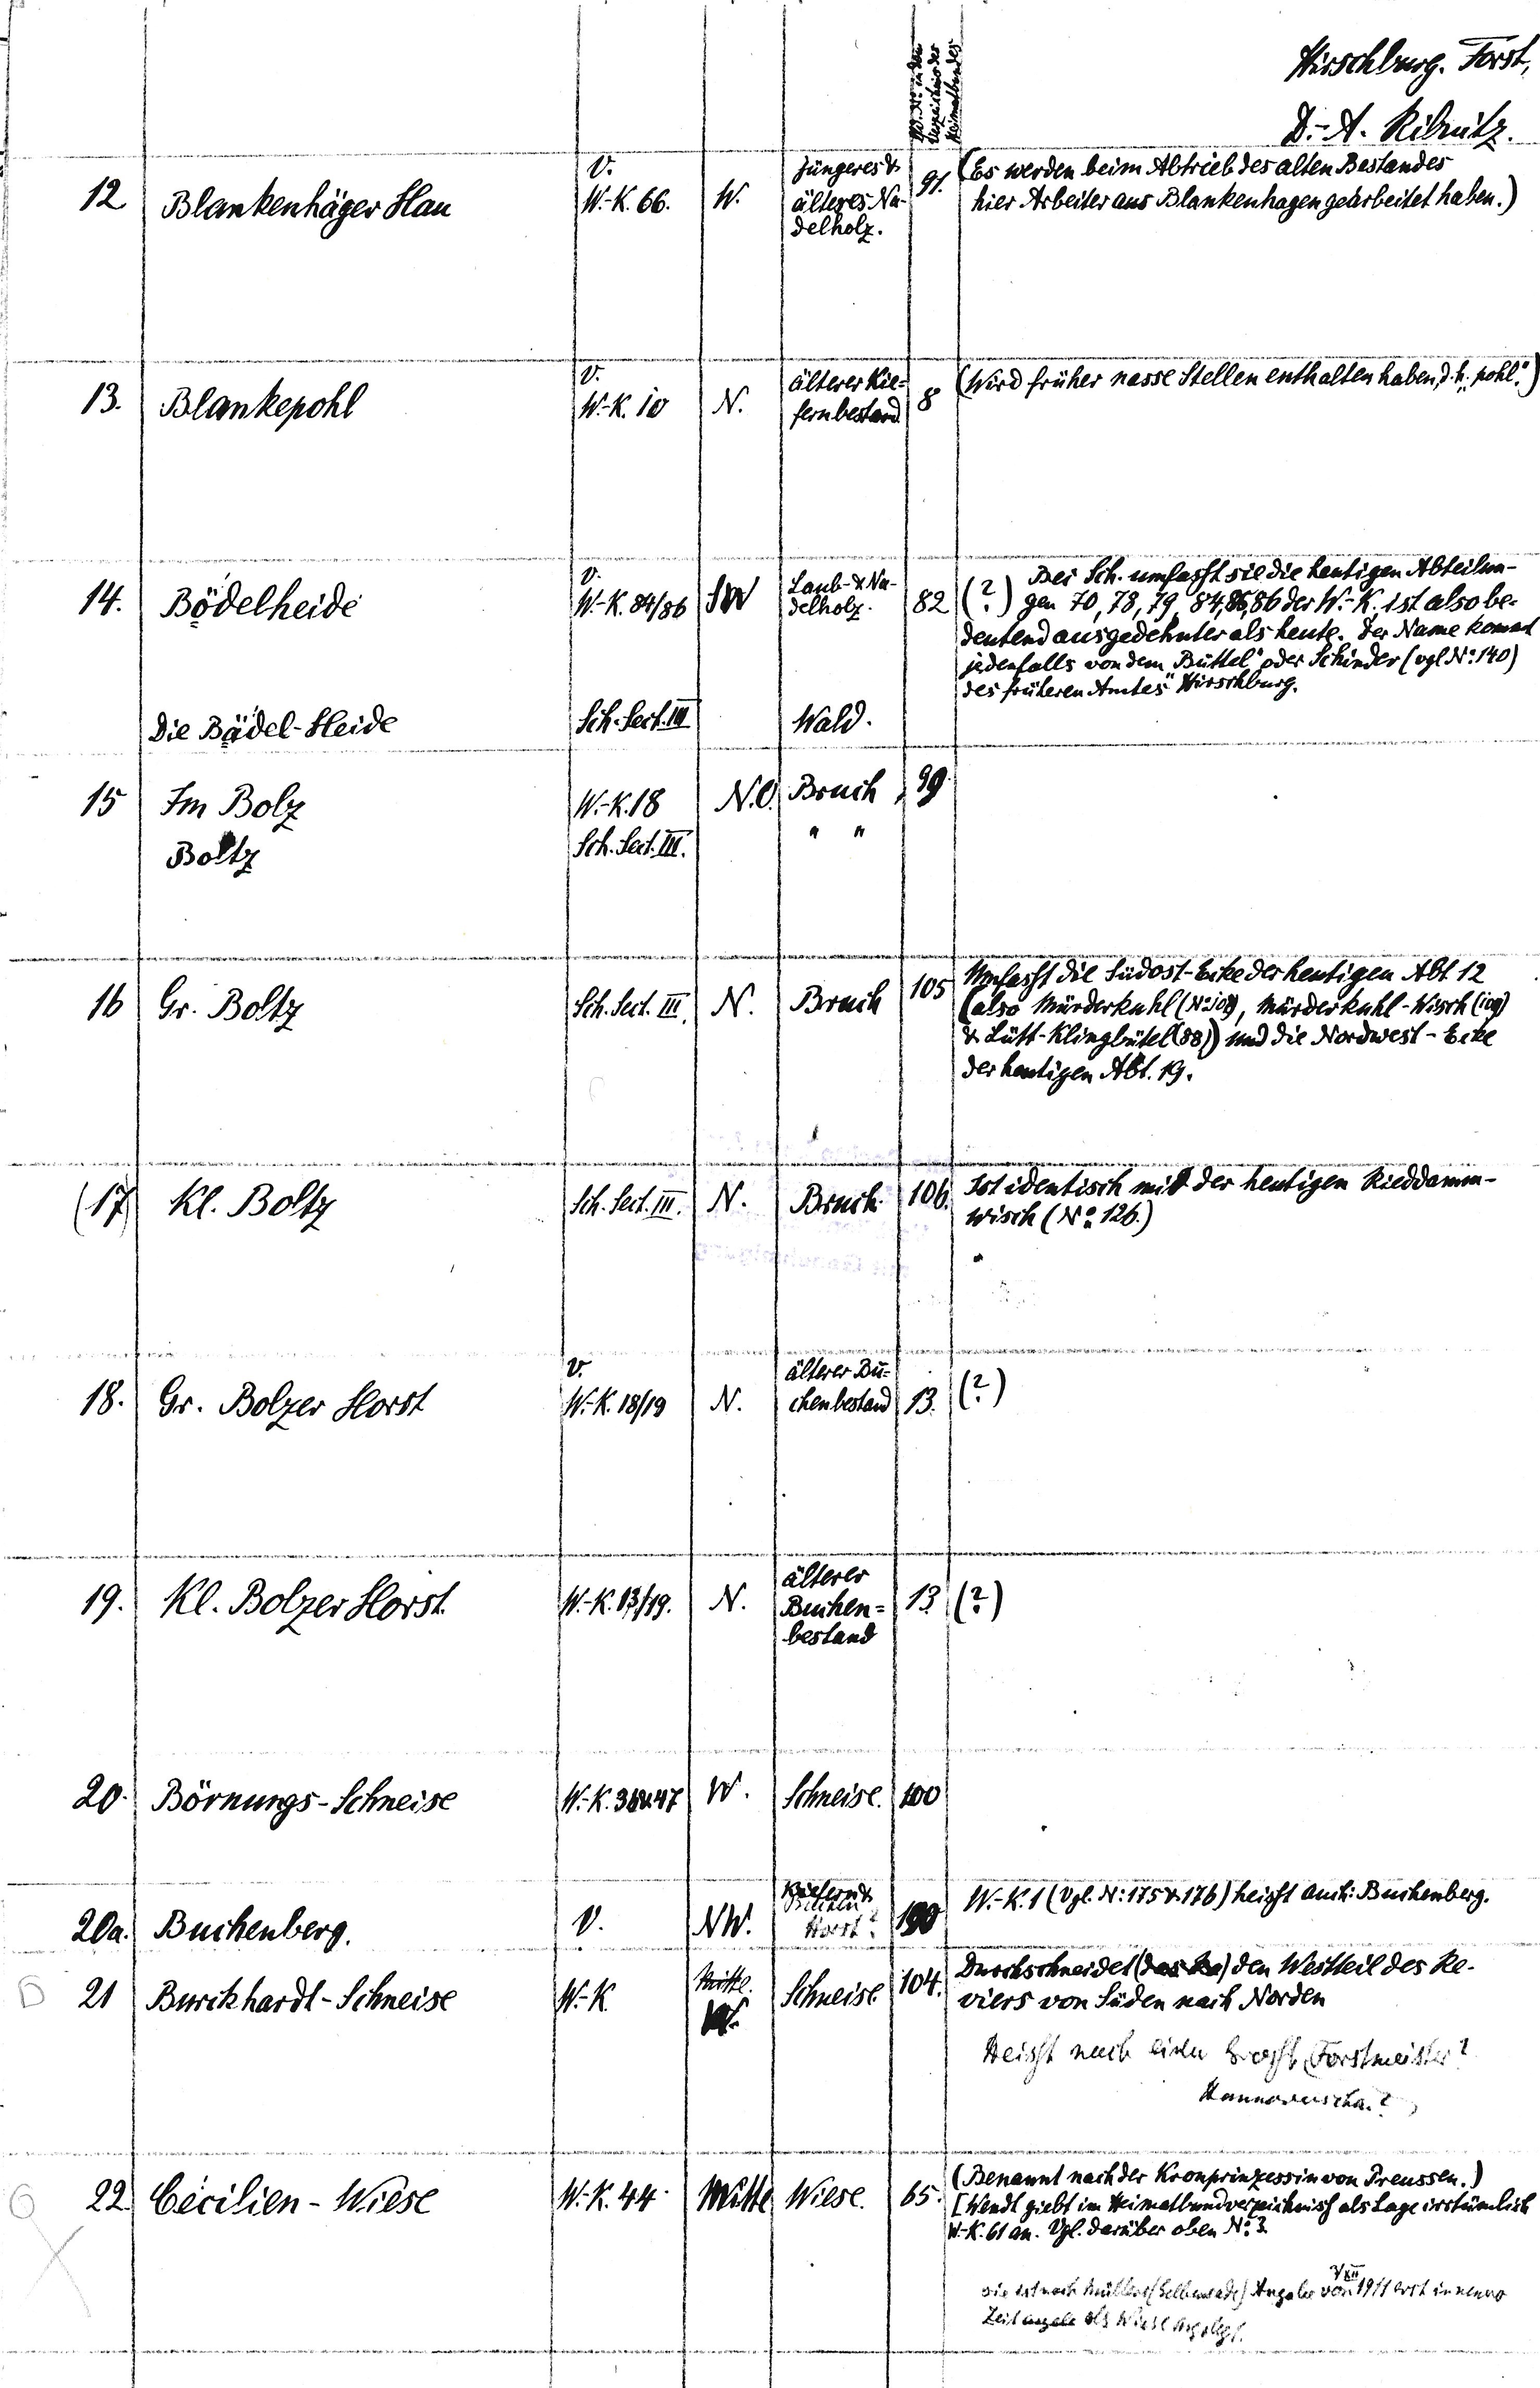 Hirschburg. Forst,
D.-A. Ribnitz.
12 Blankenhäger Hau
V.
W.-K. 66.
W.
Jüngeres &
älteres Na-
delholz.
91.
(Es werden beim Abtrieb des alten Bestandes
hier Arbeiter aus Blankenhagen gearbeitet haben.)
13. Blankepohl
V.
W.-K. 10
N.
älterer Kie=
fernbestand
8
(Wird früher nasse Stellen enthalten haben, d. h. „pohl“.)
14. Bödelheide
V.
W.-K. 84/86
SW
Laub- & Na-
delholz.
82
(?) Bei Sch. umfasst sie die heutigen Abteilun-
gen 70, 78, 79, 84, 85, 86 der W.-K. ist also be-
deutend ausgedehnter als heute. Der Name kommt
jedenfalls von dem „Büttel“ oder Schinder (vgl. No. 140)
des früheren Amtes Hirschburg.
Die Bädel-Heide
Sch. Sect. III
Wald.
15 Im Bolz
W.-K. 18
N.O.
Bruch
99
Boltz
Sch. Sect. III.
" "
16 Gr. Boltz
Sch. Sect. III.
N.
Bruch
105
Umfasst die Südost-Ecke der heutigen Abt 12
(also Mürderkuhl (No 108), Mürderkuhl-Wisch (109)
& Lütt-Klingbütel (88)) und die Nordwest-Ecke
der heutigen Abt. 19.
(17) Kl. Boltz
Sch. Sect. III.
N.
Bruch
106.
Ist identisch mit der heutigen Rieddamm-
wisch (No. 126.)
18. Gr. Bolzer Horst
V.
W.-K. 18/19
N.
älterer Bu=
chenbestand
13.
(?)
19. Kl. Bolzer Horst.
W.-K. 13/19.
N.
älterer
Buchen=
bestand
13
(?)
20. Börnungs-Schneise
W.-K. 38&47
W.
Schneise.
100
20a. Buchenberg.
V.
NW.
Kiefern &
Buchen
Horst?
190
W.-K. 1 (Vgl. No: 175 & 176) heisst auch: Buchenberg.
21 Burckhardt-Schneise
W.-K.
Mitte.
Schneise
104.
Durchschneidet den Westteil des Re-
viers von Süden nach Norden
Heisst nach Forstmeister?
22. Cécilien-Wiese
W.-K. 44
Mitte
Wiese.
65.
(Benannt nach der Kronprinzessin von Preussen.)
[Wendt giebt im Heimatbundverzeichniss als Lage irrtümlich
W.-K. 61 an. Vgl. darüber oben No. 3.
Sie ist nach Müllers Angabe von 1911 erst in neuer
Zeit als Wiese angelegt.